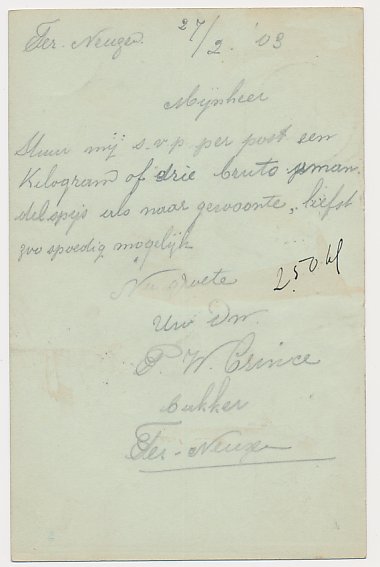 Ter-Neuzen. 27/2. '03
Mijnheer
Stuur mij s.v.p per post een
Kilogram of drie bruto aman
delspijs als naar gewoonte, liefst
zoo spoedig mogelijk
Na groete
250 kl
Uw Dw.
P. W. Crince
bakker
Ter-Neuzen